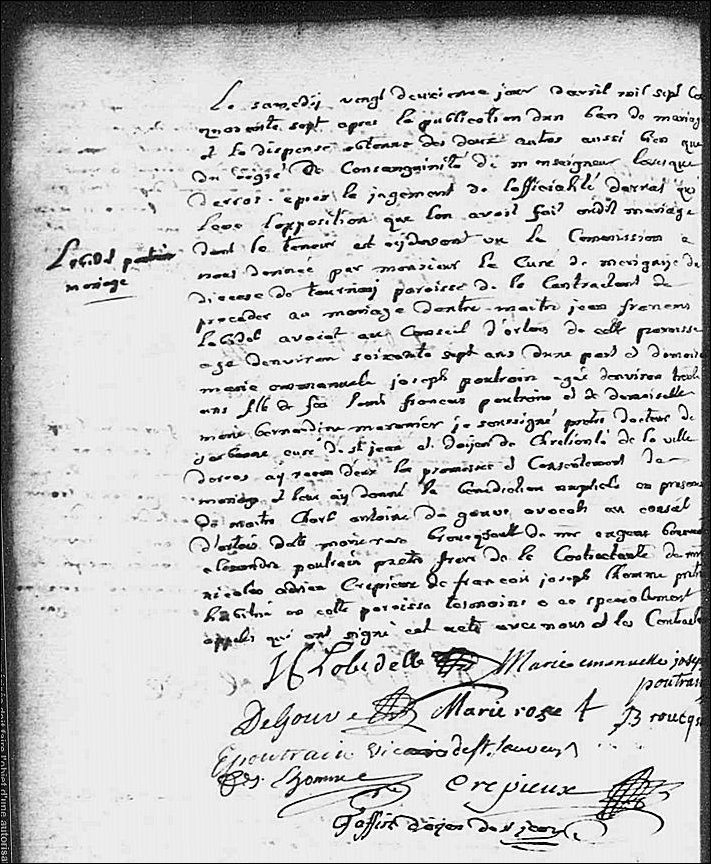 Le samedij vingt deuxieme jour davril mil sept Ce
quarente sept apres la publication dun ban de mariag
et la dispense obtenue des deux autres aussi bien que
du degré De Consanguinité de monseigneur leveque
darras apres le jugement de lofficialité darras qui
leve lopposition que lon avoit fait audit mariage
dont la teneur est cijdevant vu la Commission a
nous donnee par monsieur le Curé de
diocese de tournaij paroisse de la Contractant de
proceder au mariage dentre maitre jean francois
Lobidel avocat au Conseil d'artois de cette paroisse
agé denviron soixante sept ans dune part et damois
marie emmanuele joseph poutrain agée denviron trente
ans fille de feu louis francois poutrain et de damoiselle
marie bernardine je soussigné pretre docteur de
Sorbonne curé de st jean et doijen de Chretienté de la ville
darras aij receu deux la promesse et Consentement de
mariage et leur aij donné la benediction nuptiale en presence
de maitre Charle antoine de gouve avocat au conseil
d'artois marie rose Broucqsault de
alexandre poutrain pretre frere de la Contractante de
nicolas adrien Crepieux de francois joseph lhomme pretre
habitué en cette paroisse temoins a ce specialement
appelés qui ont signé cet acte avec nous et les Contracta
Lobidel poutrain
mariage
Lobidelle Marie emanuelle josep
poutrain
DeGouve Marie rose Broucqs
Epoutrain vicaire de st sauveur
Lhomme Crepieux
doijen de st jean